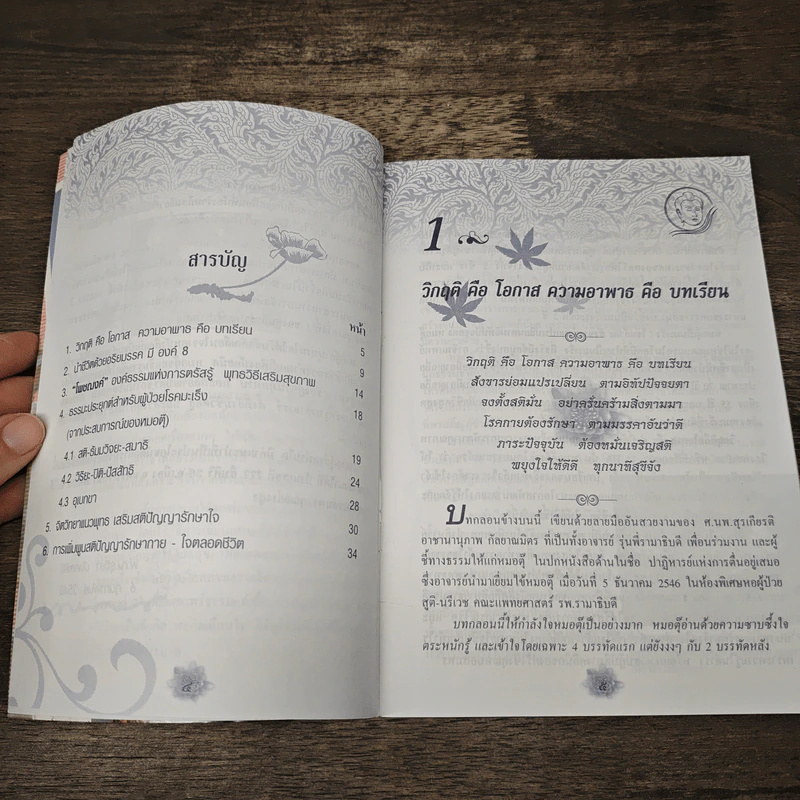 สารบัญ
หน้า
1. วิกฤติ คือ โอกาส ความอาพาธ คือ บทเรียน 5
2. นำชีวิตด้วยอริยมรรค มี องค์ 8 9
3. "โพชฌงค์" องค์ธรรมแห่งการตรัสรู้ พุทธวิธีเสริมสุขภาพ 14
4. ธรรมะประยุกต์สำหรับผู้ป่วยโรคมะเร็ง 18
(จากประสบการณ์ของหมอตุ๊)
4.1 สติ-ธัมมวิจยะ-สมาธิ 19
4.2 วิริยะ-ปิติ-ปัสสัทธิ 24
4.3 อุเบกขา 28
5. จิตวิทยาแนวพุทธ เสริมสติปัญญารักษาใจ 30
6. การเพิ่มพูนสติปัญญารักษากาย - ใจตลอดชีวิต 34
๔
1
วิกฤติ คือ โอกาส ความอาพาธ คือ บทเรียน
วิกฤติ คือ โอกาส ความอาพาธ คือ บทเรียน
สังขารย่อมแปรเปลี่ยน ตามอิทัปปัจจยตา
จงตั้งสติมั่น อย่าครั่นคร้ามสิ่งตามมา
โรคกายต้องรักษา ตามมรรคาอันว่าดี
ภาระปัจจุบัน ต้องหมั่นเจริญสติ
พยุงใจให้ดีดี ทุกนาทีสุขีจัง
บทกลอนข้างบนนี้ เขียนด้วยลายมืออันสวยงามของ ศ.นพ.สุรเกียรติ
อาชานานุภาพ กัลยาณมิตร ที่เป็นทั้งอาจารย์ รุ่นพี่รามาธิบดี เพื่อนร่วมงาน และผู้
ชี้ทางธรรมให้แก่หมอตุ๊ ในปกหนังสือด้านในชื่อ ปาฏิหารแห่งการตื่นอยู่เสมอ
ซึ่งอาจารย์นำมาเยี่ยมไข้หมอตุ๊ เมื่อวันที่ 5 ธันวาคม 2546 ในห้องพิเศษหอผู้ป่วย
สูติ-นรีเวช คณะแพทยศาสตร์ รพ.รามาธิบดี
บทกลอนนี้ให้กำลังใจหมอตุ๊เป็นอย่างมาก หมอตุ๊อ่านด้วยความซาบซึ้งใจ
ตระหนักรู้ และเข้าใจโดยเฉพาะ 4 บรรทัดแรก แต่ยังงงๆ กับ 2 บรรทัดหลัง
๕